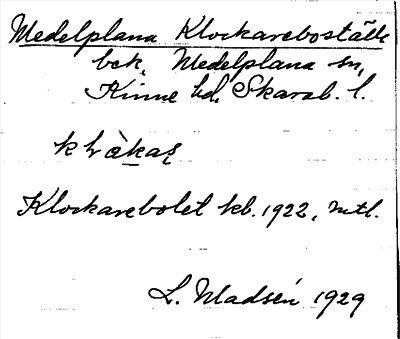 Medelplana Klockareboställe
bek. Medelplana sn,
Kinne hd, Skarab. l.
Klockarebolet kb. 1922, mtl.
L. Madsén 1929